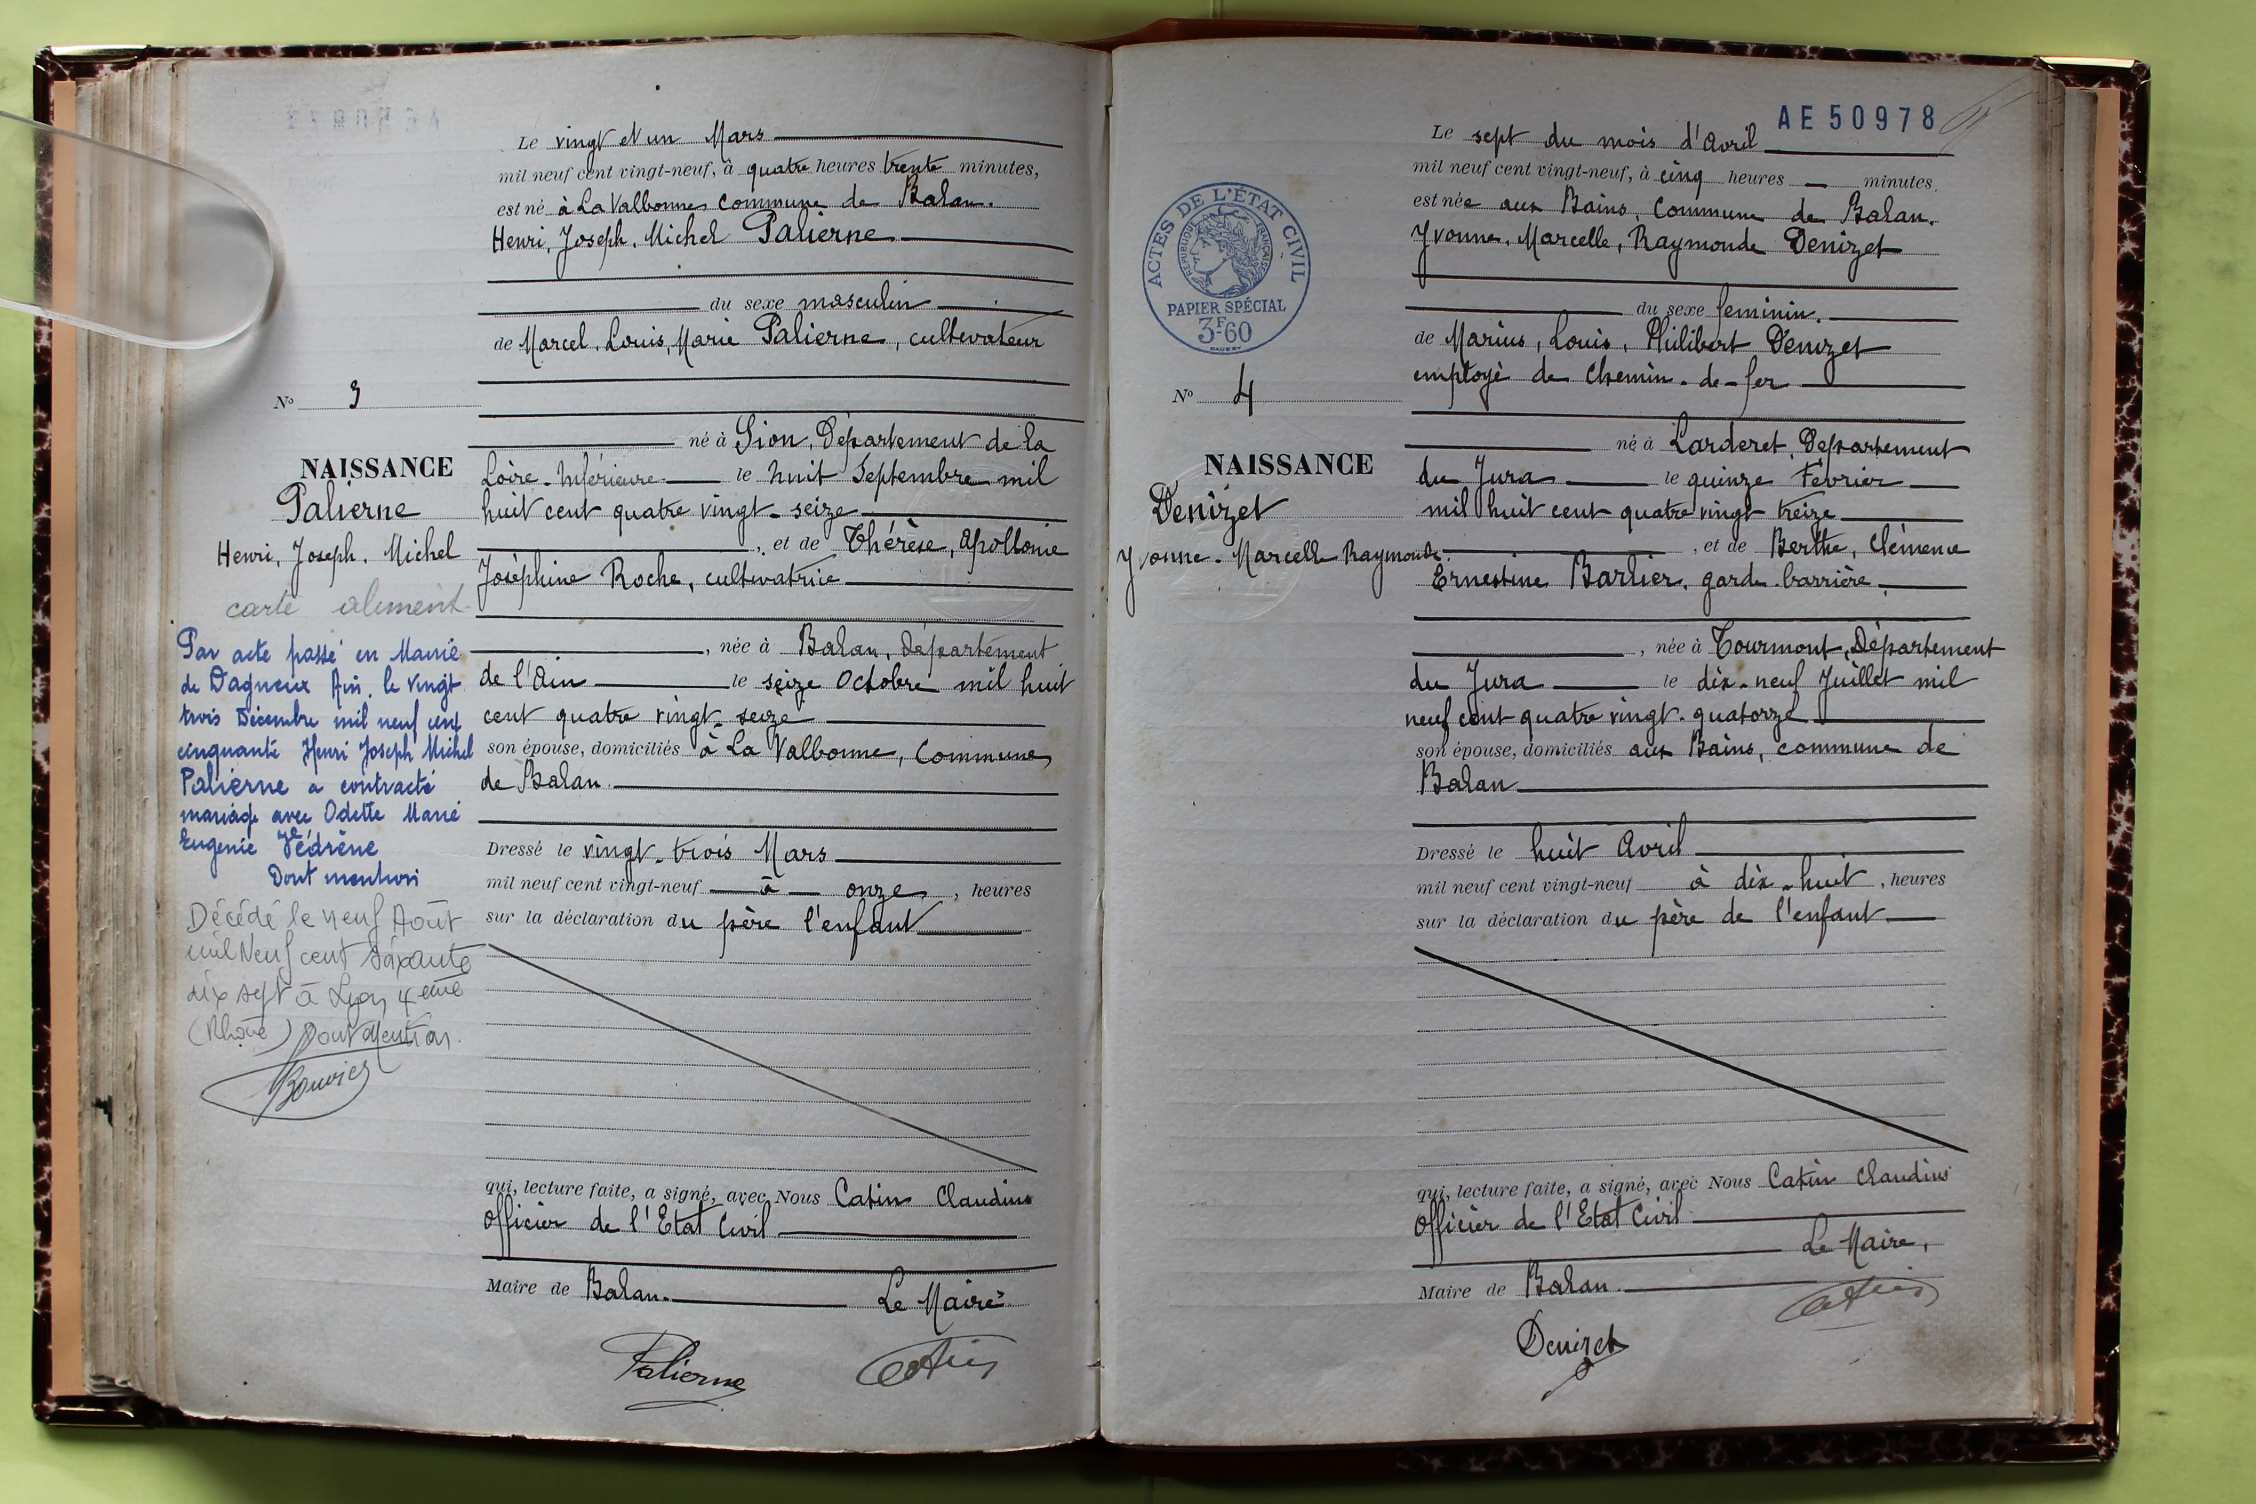 Le vingt et un Mars
mil neuf cent vingt-neuf, à quatre heures trente minutes,
est né à La Valbonne commune de Balan.
Henri, Joseph, Michel Palierne
du sexe masculin
de Marcel, Louis, Marie Palierne, cultivateur
né à Sion, Département de la
Loire-Inférieure le huit Septembre mil
huit cent quatre vingt-seize
, et de Thérèse, Apollonie
Joséphine Roche, cultivatrice
, née à Balan, Département
de l'Ain le seize Octobre mil huit
cent quatre vingt-seize
son épouse, domiciliés à La Valbonne, Commune
de Balan
Dressé le vingt-trois Mars
mil neuf cent vingt-neuf à onze, heures
sur la déclaration du père l'enfant
qui, lecture faite, a signé, avec Nous Catin Claudius
Officier de l'Etat Civil
Maire de Balan. Le Maire
Palierne Catin
N° 3
NAISSANCE
Palierne
Henri, Joseph, Michel
carte aliment.
Par acte passé en Mairie
de Dagneux Ain, le vingt
trois Décembre mil neuf cent
cinquante Henri Joseph Michel
Palierne a contracté
mariage avec Odette Marie
Eugenie Védrène
Dont mention
Décédé le neuf Août
mil Neuf cent soixante
dix sept à Lyon 4ème
(Rhône) Dont Mention.
Bouvier
AE 50978
Le sept du mois d'Avril
mil neuf cent vingt-neuf, à cinq heures — minutes.
est née aux Bains, Commune de Balan.
Yvonne, Marcelle, Raymonde Denizet
du sexe feminin.
de Marius, Louis, Philibert Denizet
employé de Chemin-de-fer
né à Larderet, Département
du Jura le quinze Février
mil huit cent quatre vingt treize
, et de Berthe, Clémence
Ernestine Barlier, garde-barrière
, née à Tourmont, Département
du Jura le dix-neuf Juillet mil
neuf cent quatre vingt-quatorze
son épouse, domiciliés aux Bains, commune de
Balan
Dressé le huit Avril
mil neuf cent vingt-neuf à dix-huit, heures
sur la déclaration du père de l'enfant
qui, lecture faite, a signé, avec Nous Catin Claudius
Officier de l'Etat Civil
Le Maire,
Maire de Balan.
Catin
Denizet
ACTES DE L'ÉTAT CIVIL
RÉPUBLIQUE FRANÇAISE
PAPIER SPÉCIAL
3F60
N° 4
NAISSANCE
Denizet
Yvonne-Marcelle Raymonde